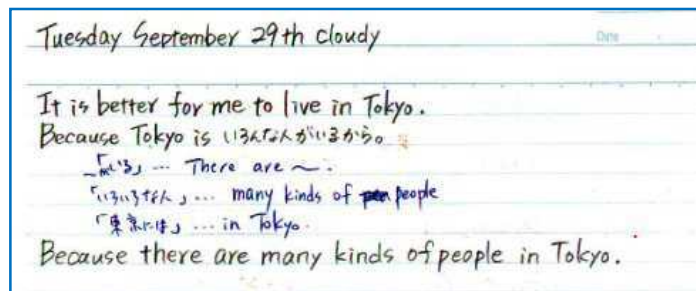 Tuesday September 29th cloudy
Date
It is better for me to live in Tokyo.
Because Tokyo is いろんな人がいるから。
「〜がいる」… There are ～.
「いろいろな人」… many kinds of people
「東京には」… in Tokyo.
Because there are many kinds of people in Tokyo.